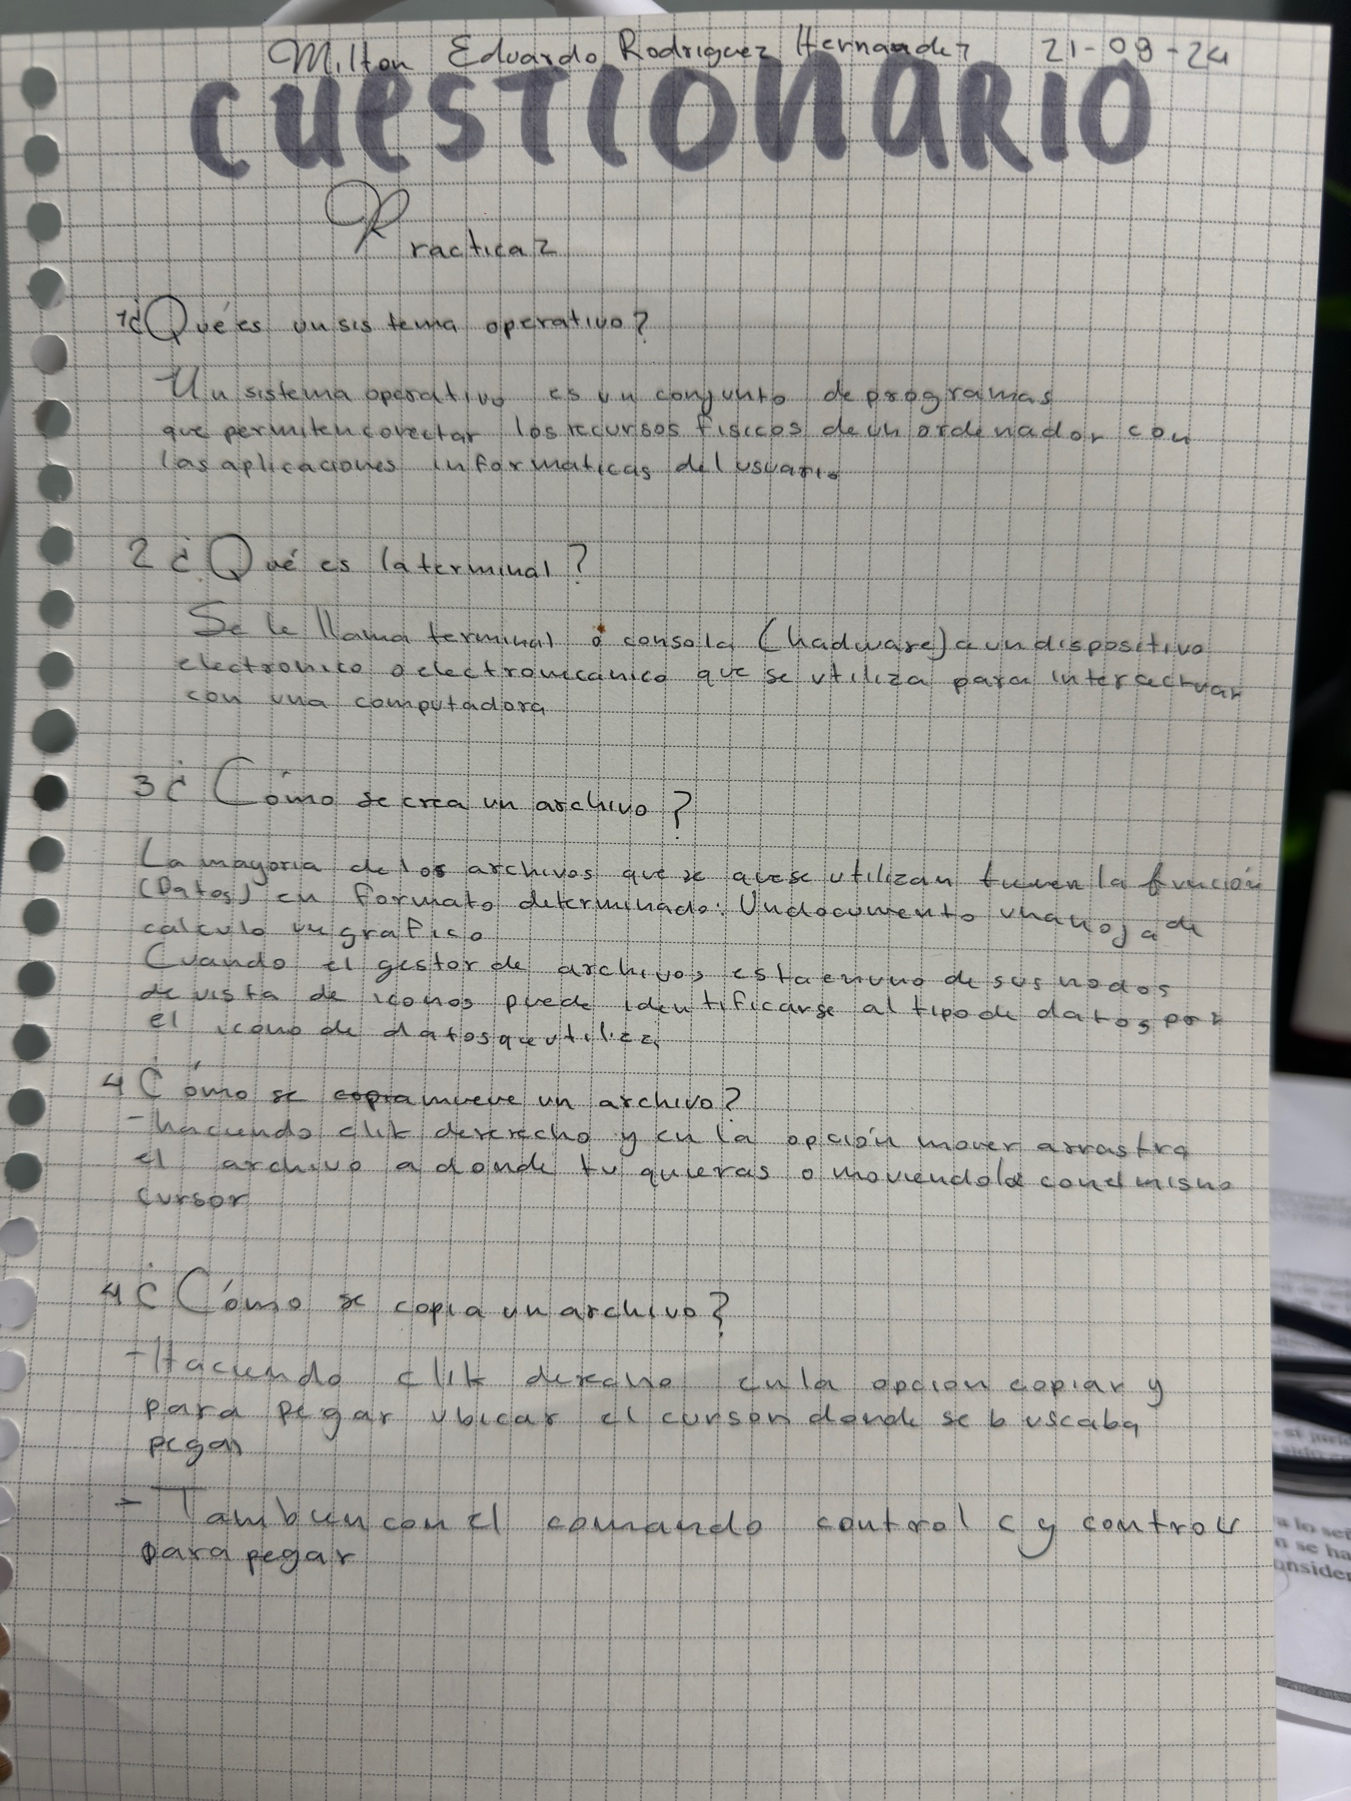 Milton Eduardo Rodriguez Hernandez 21-08-24
CUESTIONARIO
Practica 2
1¿Qué es un sistema operativo?
Un sistema operativo es un conjunto de programas
que permiten conectar los recursos fisicos de un ordenador con
las aplicaciones informaticas del usuario
2 ¿Qué es la terminal?
Se le llama terminal o consola (hadware) a un dispositivo
electronico o electromecanico que se utiliza para interactuar
con una computadora
3 ¿Cómo se crea un archivo?
La mayoria de los archivos que se que se utilizan tienen la función
(Datos) en formato determinado: Un documento una hoja de
calculo un grafico
Cuando el gestor de archivos esta en uno de sus modos
de vista de iconos puede identificarse al tipo de datos por
el icono de datos que utiliza
4 Cómo se copia mueve un archivo?
- haciendo clik dererecho y en la opción mover arrastra
el archivo a donde tu quieras o moviendolo con el mismo
cursor
4 ¿Cómo se copia un archivo?
- Haciendo clik derecho en la opcion copiar y
para pegar ubicar el cursor donde se buscaba
pegar
- Tambien con el comando control c y control v
para pegar